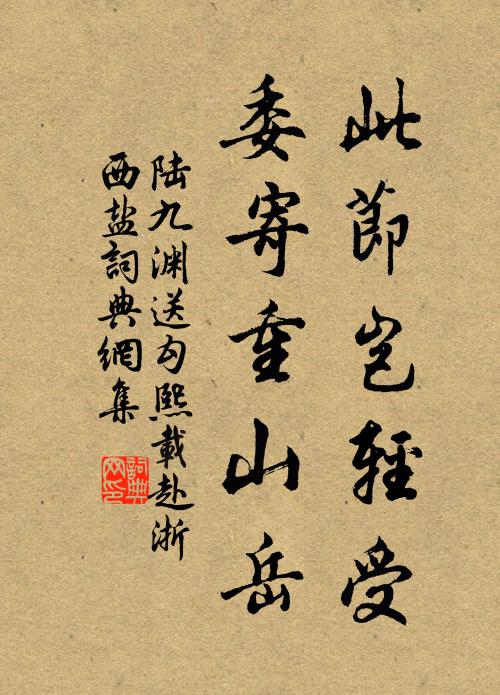 此節岂輕受
委寄重山岳
陆九渊送勾熙載赴浙
西盐詞典網集
詞典网印